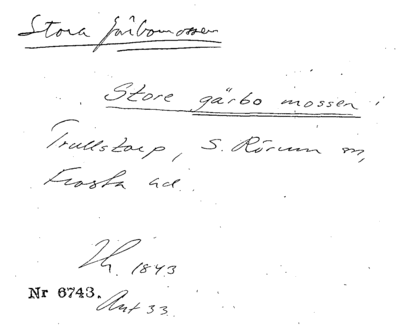 Stora gärbomossen
Store gärbo mossen i
Trullstorp, S. Rörum sn,
Frosta hd.
1843
Nr 6743. Ant 33.